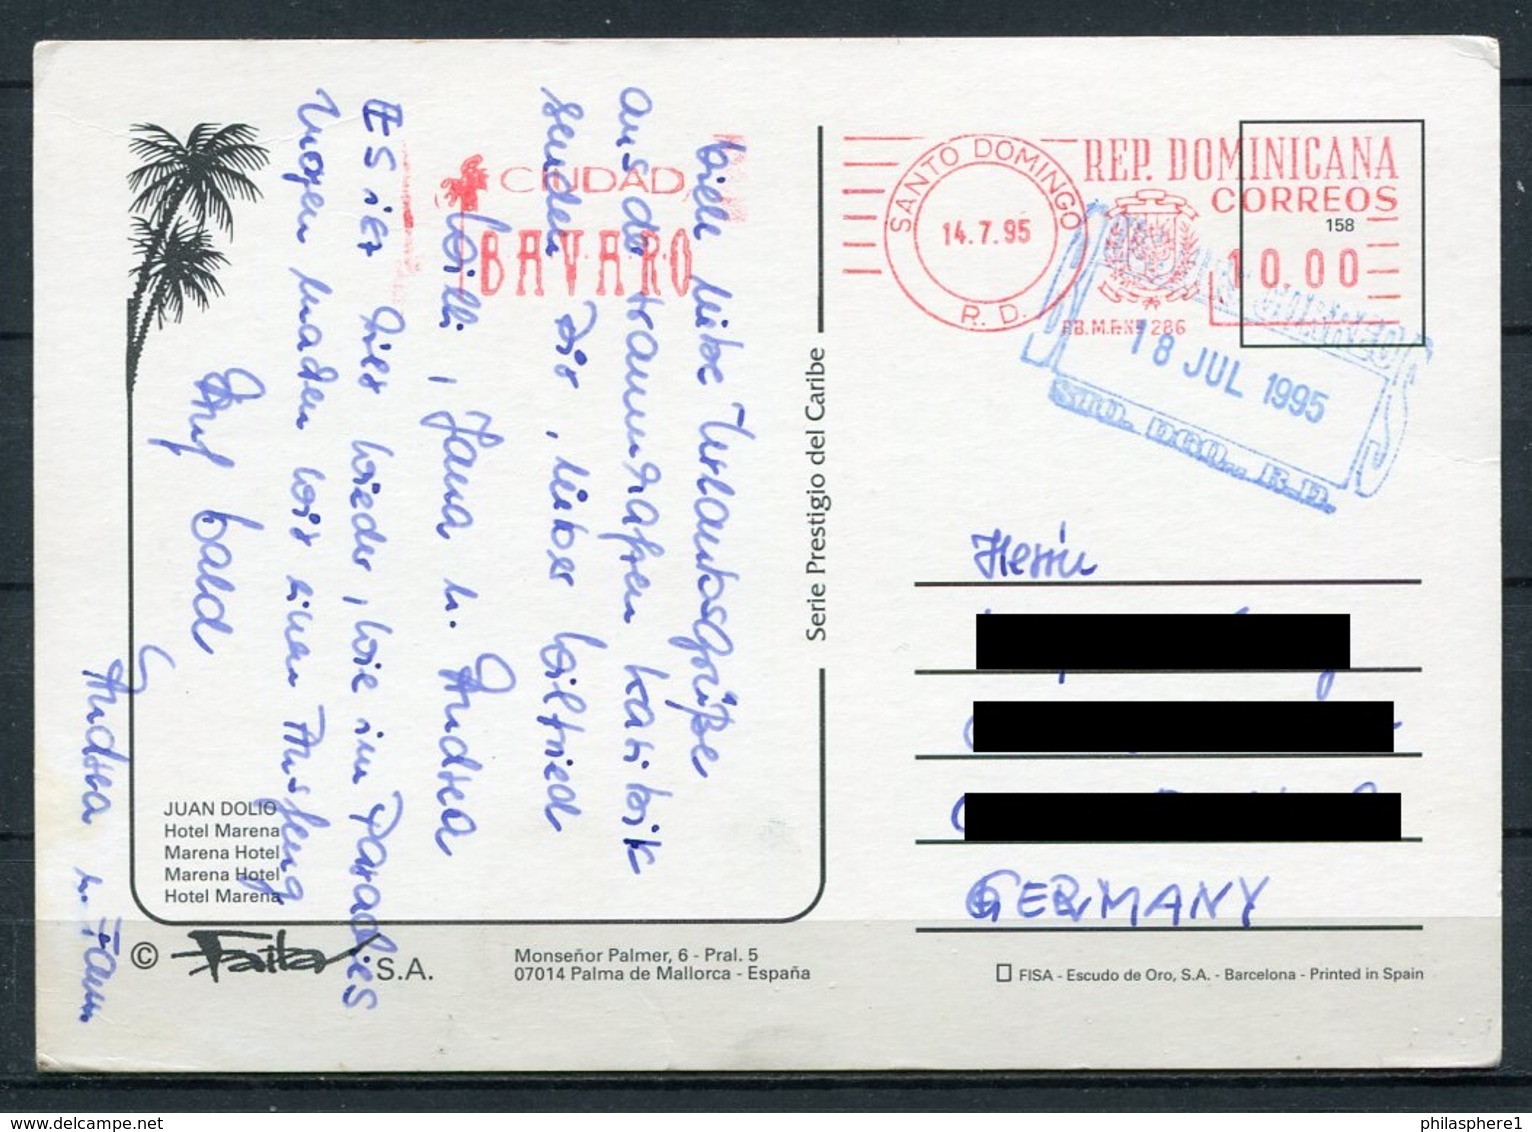 Viele liebe Urlaubsgrüße
aus der traumhaften Karibik
senden Dir, lieber Wilfried
Willi, Jana u. Andrea
Es ist hier wieder, wie im Paradies
Morgen machen wir einen Ausflug
Auf bald
Andrea u. Fam.
CIUDAD
BAVARO
JUAN DOLIO
Hotel Marena
Marena Hotel
Marena Hotel
Hotel Marena
© Faita S.A.
Monseñor Palmer, 6 - Pral. 5
07014 Palma de Mallorca - España
Serie Prestigio del Caribe
SANTO DOMINGO
14.7.95
R. D.
REP. DOMINICANA
CORREOS
158
10.00
P.B.M.F.Nº 286
18 JUL 1995
STO. DGO., R.D.
Herrn
GERMANY
FISA - Escudo de Oro, S.A. - Barcelona - Printed in Spain
philasphere1